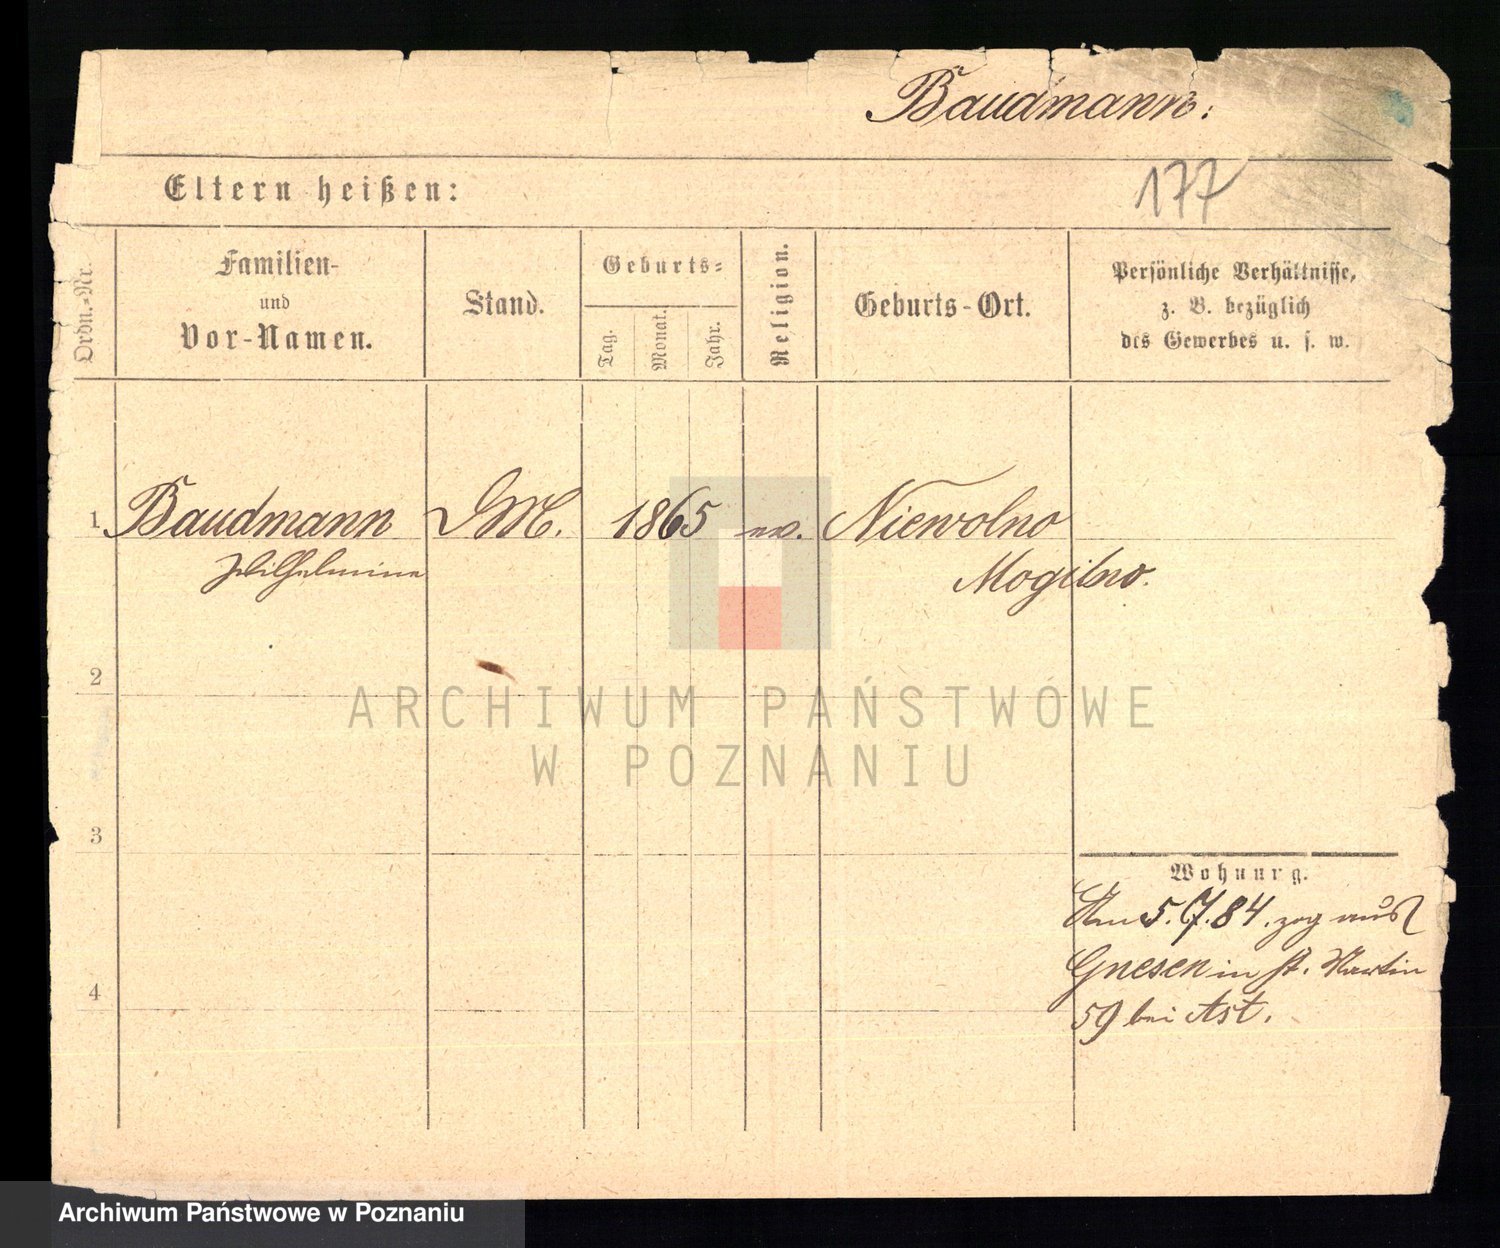 Baudmann.
177
Eltern heißen:
Ordn.-Nr.
Familien-
und
Vor-Namen.
Stand.
Geburts-
Tag.
Monat.
Jahr.
Religion.
Geburts-Ort.
Persönliche Verhältnisse,
z. B. bezüglich
des Gewerbes u. s. w.
1 Baudmann DM. 1865 ev. Niewolno
Wilhelmine Mogilno.
2
3
4
Wohnung.
Am 5.7.84. zog aus
Gnesen in St. Martin
59 bei Ast.
ARCHIWUM PAŃSTWOWE
W POZNANIU
Archiwum Państwowe w Poznaniu